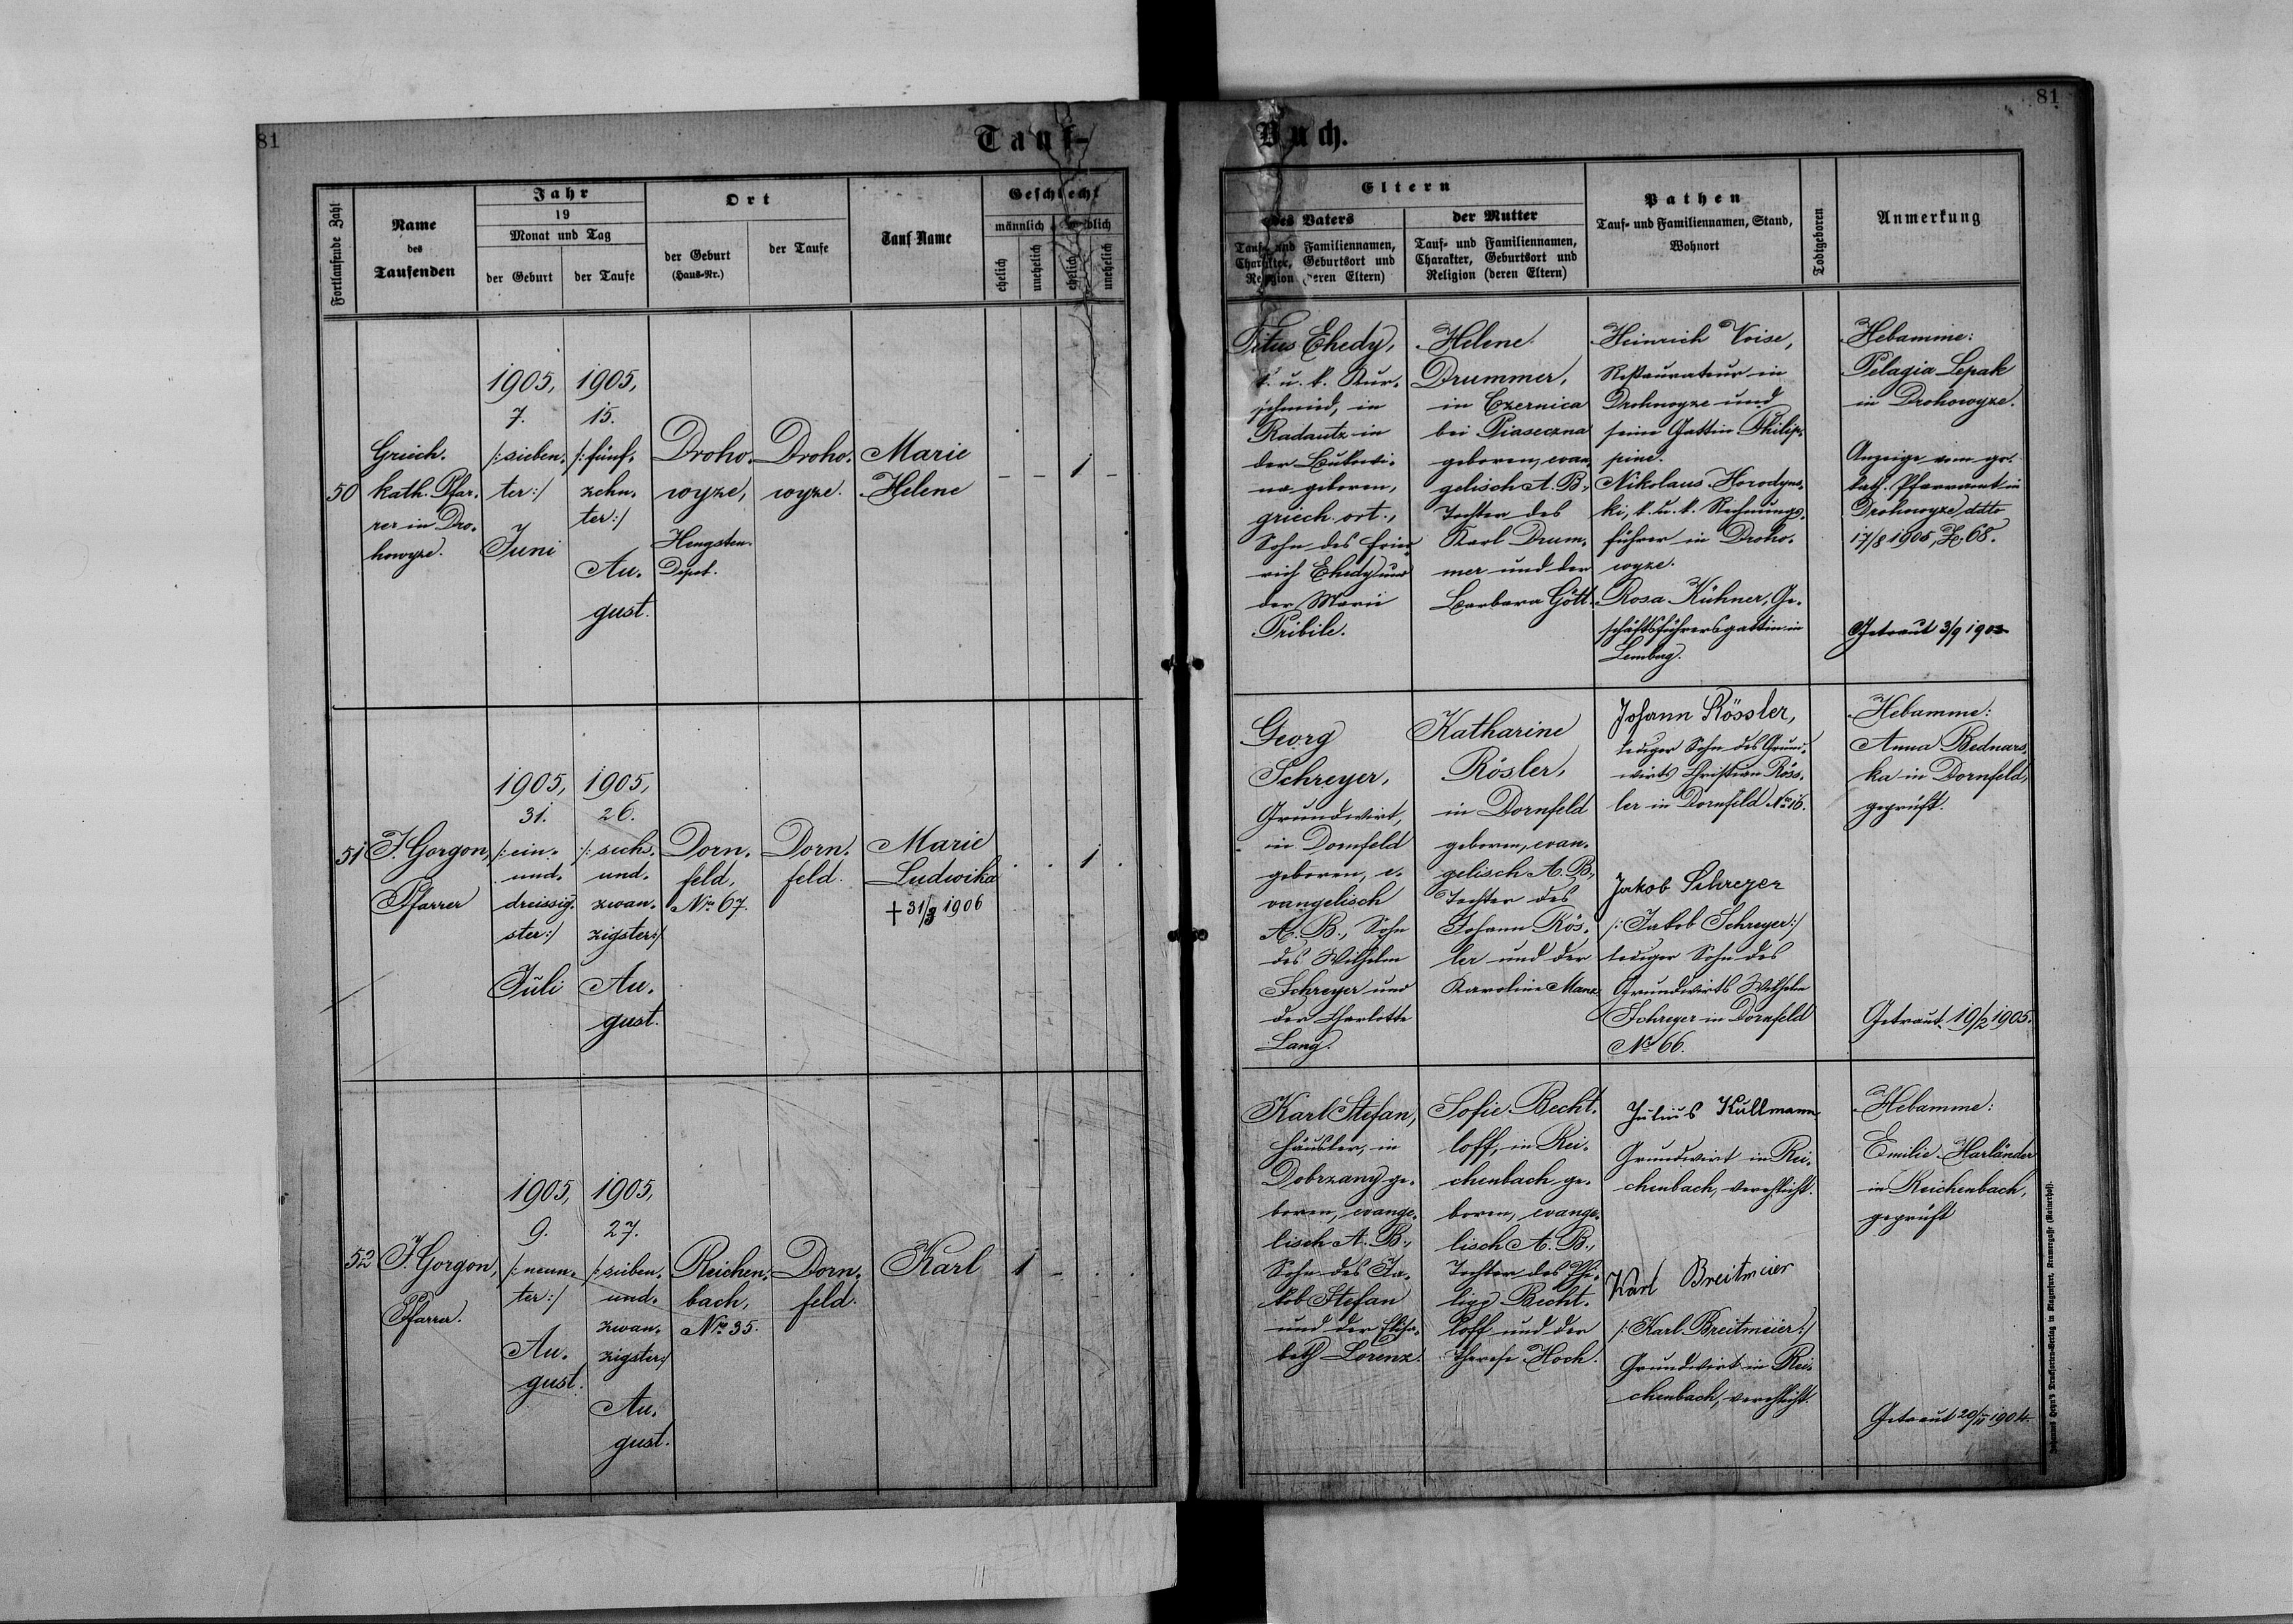 81
Tauf-
Fortlaufende Zahl
Name
des
Taufenden
Jahr
19
Monat und Tag
der Geburt
der Taufe
Ort
der Geburt
(Haus-Nr.)
der Taufe
Tauf-Name
Geschlecht
männlich
weiblich
ehelich
unehelich
ehelich
unehelich
50
Griech.
kath. Pfar-
rer in Dro-
howyze.
1905,
7.
/: sieben-
ter :/
Juni
1905,
15.
/: fünf-
zehn-
ter :/
Au-
gust.
Droho-
wyze,
Hengsten-
Depot.
Droho-
wyze.
Marie
Helene
– – 1 –
51
J. Gorgon,
Pfarrer
1905,
31.
/: ein-
und-
dreissig-
ster :/
Juli
1905,
26.
/: sech-
und-
zwan-
zigster :/
Au-
gust.
Dorn-
feld,
Nro 67.
Dorn-
feld.
Marie
Ludwika
† 31/3 1906
. . 1 .
52
J. Gorgon,
Pfarrer.
1905,
9.
/: neun-
ter :/
Au-
gust.
1905,
27.
/: sieben-
und-
zwan-
zigster :/
Au-
gust.
Reichen-
bach,
Nro 35.
Dorn-
feld.
Karl
1 – . .
Buch.
81
Eltern
des Vaters
Tauf- und Familiennamen,
Charakter, Geburtsort und
Religion (deren Eltern)
der Mutter
Tauf- und Familiennamen,
Charakter, Geburtsort und
Religion (deren Eltern)
Pathen
Tauf- und Familiennamen, Stand,
Wohnort
Todtgeboren
Anmerkung
Titus Ehedy,
k. u. k. Kur-
schmied, in
Radautz in
der Bukowi-
na geboren,
griech. ort.,
Sohn des Fried-
rich Ehedy und
der Marie
Pribile.
Helene
Drummer,
in Czernica
bei Piaseczna
geboren, evan-
gelisch A. B.,
Tochter des
Karl Drum-
mer und der
Barbara Gött.
Heinrich Voise,
Restaurateur in
Drohowyze und
seine Gattin Philip-
pine.
Nikolaus Horodyns-
ki, k. u. k. Rechnungs-
führer in Droho-
wyze.
Rosa Kühner, Ge-
schäftsführersgattin in
Lemberg.
Hebamme:
Pelagia Lepak
in Drohowyze.
Anzeige vom gr.
kath. Pfarramt in
Drohowyze ddto
17/8 1905, Z. 68.
Getraut 3/9 1903
Georg
Schreyer,
Grundwirt,
in Dornfeld
geboren, e-
vangelisch
A. B., Sohn
des Wilhelm
Schreyer und
der Charlotte
Lang.
Katharine
Rösler,
in Dornfeld
geboren, evan-
gelisch A. B.,
Tochter des
Johann Rös-
ler und der
Karoline Manz
Johann Rössler,
lediger Sohn des Grund-
wirts Christian Röss-
ler in Dornfeld Nro 16.
Jakob Schreyer
/: Jakob Schreyer :/
lediger Sohn des
Grundwirts Wilhelm
Schreyer in Dornfeld
Nr 66.
Hebamme:
Anna Bednars-
ka in Dornfeld,
geprüft.
Getraut 19/2 1905.
Karl Stefan,
Häusler, in
Dobrzany ge-
boren, evange-
lisch A. B.,
Sohn des Ja-
kob Stefan
und der Elisa-
beth Lorenz.
Sofie Becht-
loff, in Rei-
chenbach ge-
boren, evange-
lisch A. B.,
Tochter des Phi-
lipp Becht-
loff und der
Therese Hoch.
Julius Kullmann
Grundwirt in Rei-
chenbach, verehlicht.
Karl Breitmeier
/: Karl Breitmeier :/
Grundwirt in Rei-
chenbach, verehlicht.
Hebamme:
Emilie Harländer
in Reichenbach,
geprüft
Getraut 20/II 1904
Johannes Heyn's Drucksorten-Verlag in Klagenfurt, Kramergasse (Reinerhof).